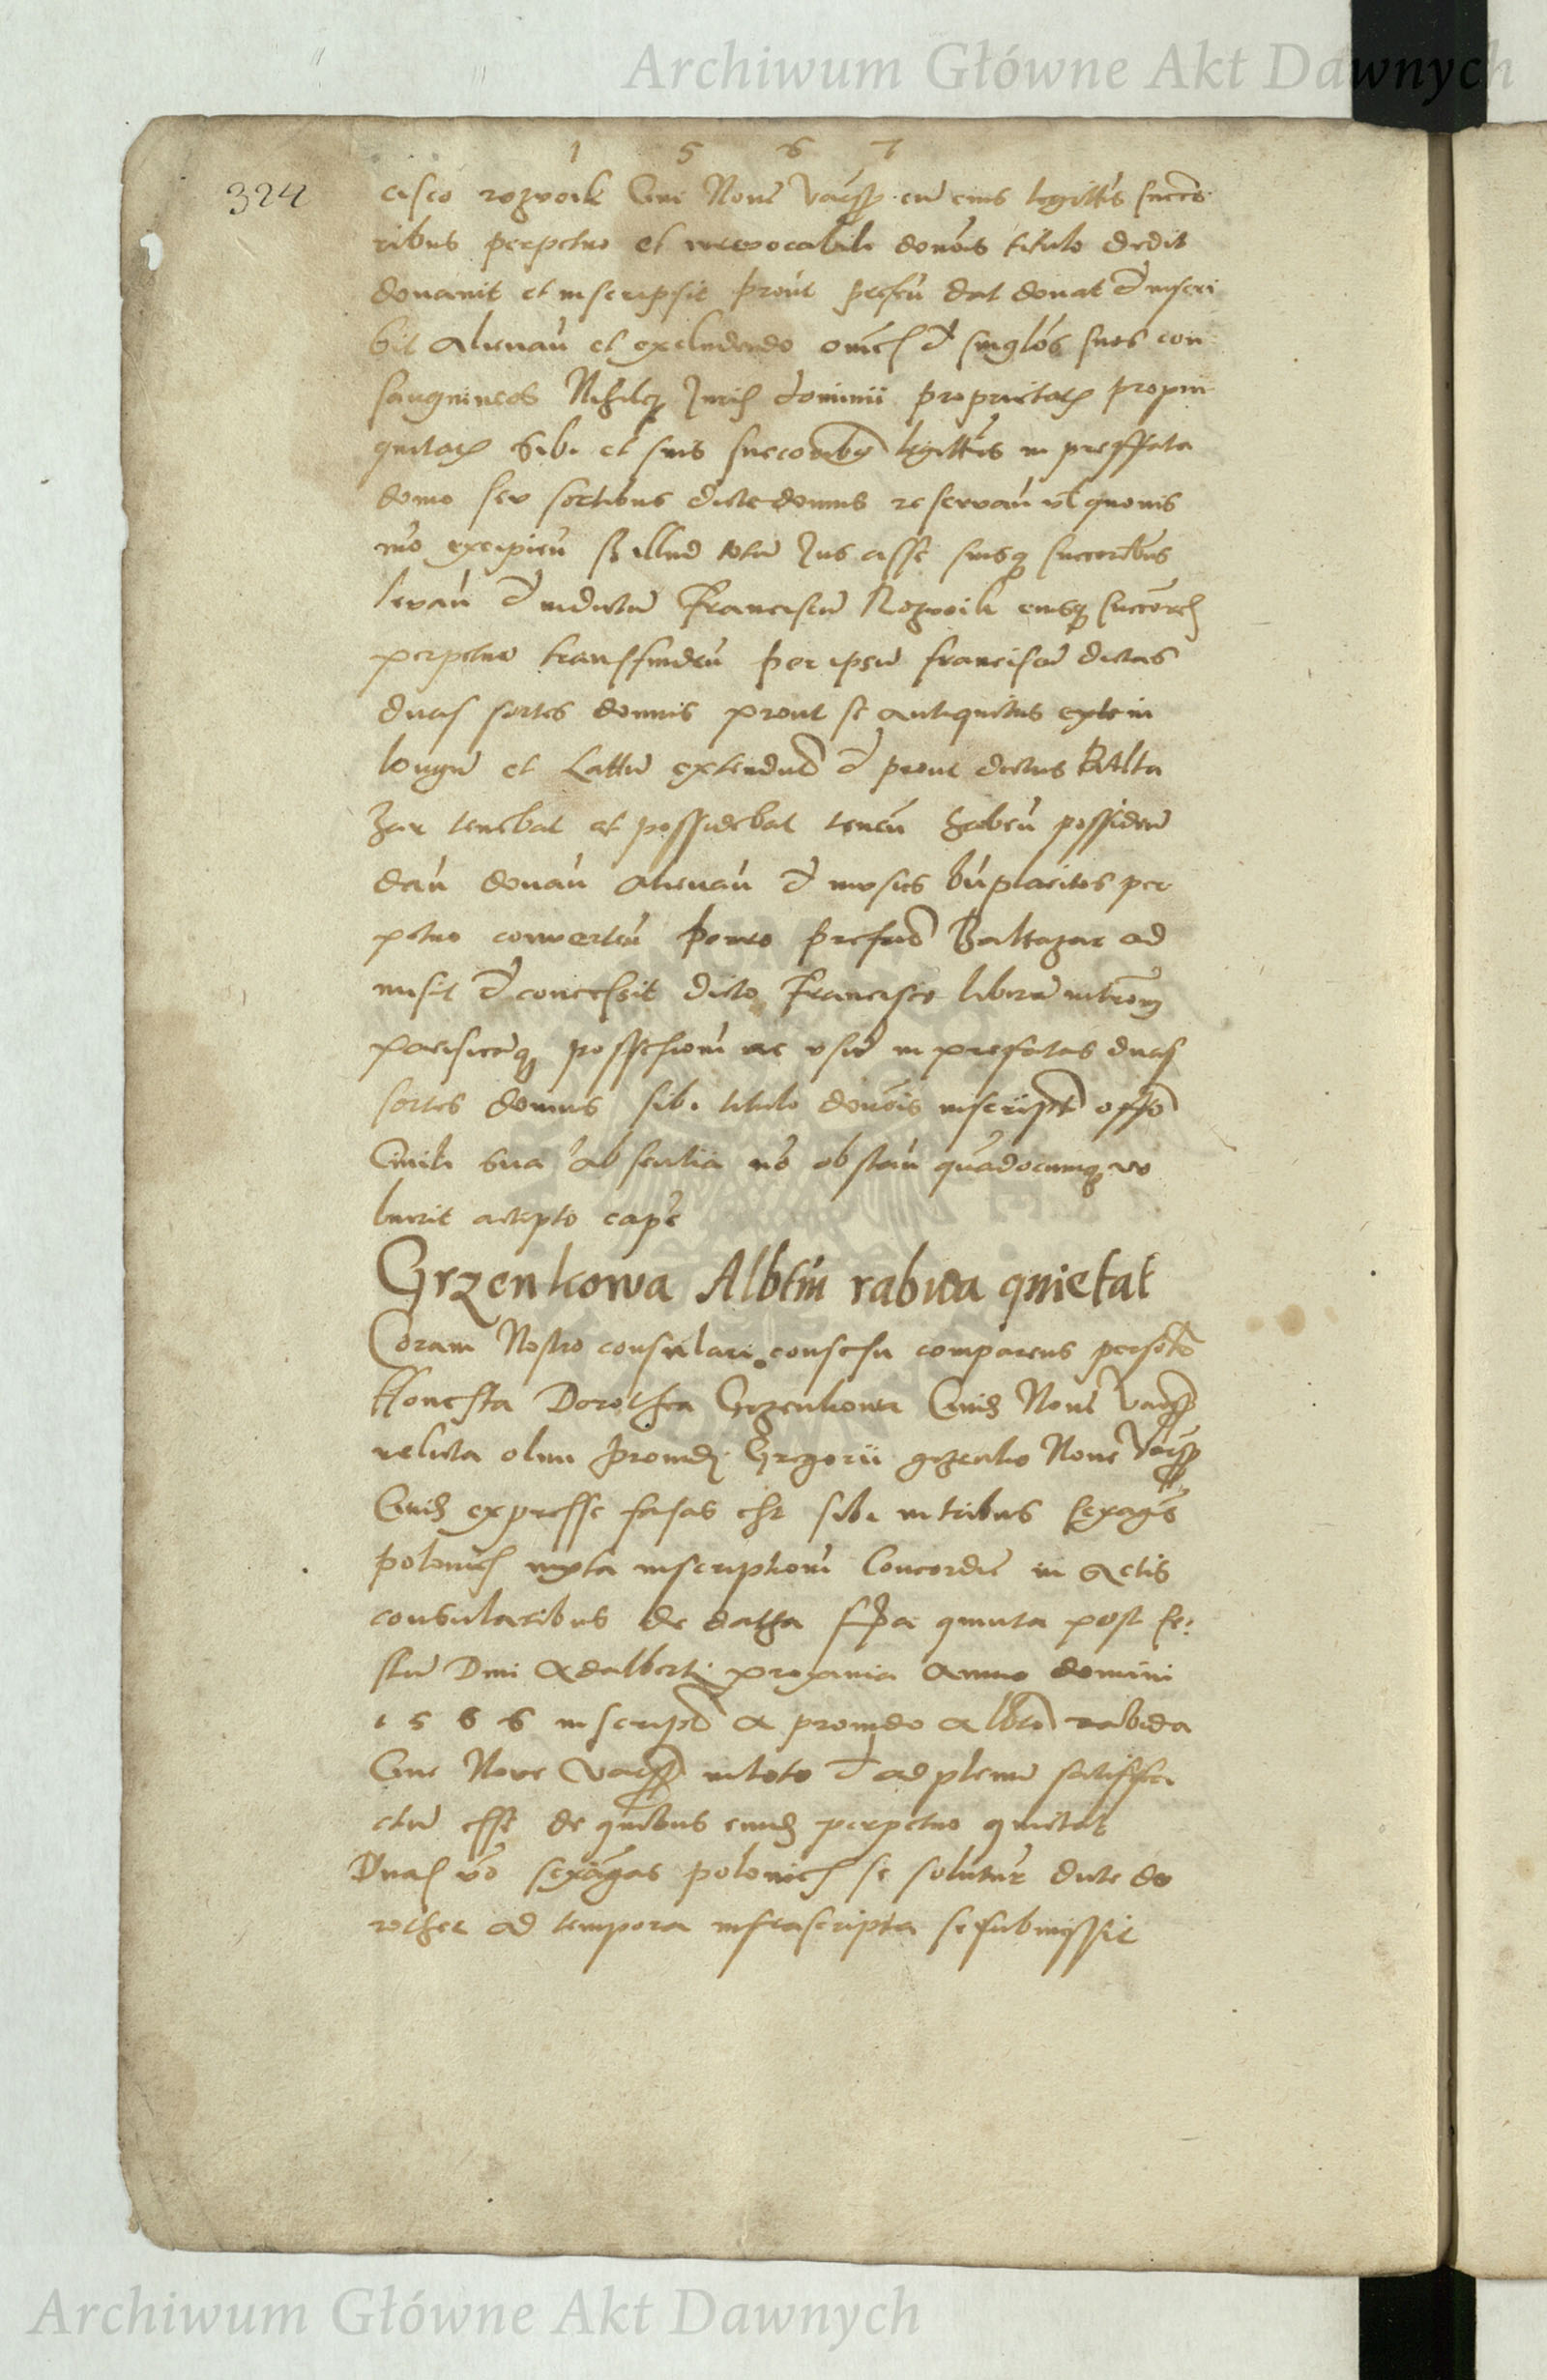 Archiwum Główne Akt Dawnych
1 5 6 7
324
cisco rozwoik Civi Nove Varss cu eius legittis succes
ribus perpetuo et irrevocabili donois titulo dedit
donavit et inscripsit prout prefeu dat donat et inscri
bit alienau et excludendo omes et singlos suos con
sanguineos Nihilq Juris dominii proprietatis propin
quitatis sibi et suis succoribus legittis in preffata
domo seu sortibus dicte domus reservau vl quovis
mo excipieu sz illud totu Jus a sse suisq succoribus
levau et in dictu Franciscu Rozwoik eiusq succores
perpetuo transfundeu per ipsu franciscu dictas
duas sortes domus prout se antiquitus exte in
longu et Lattu extendut et prout dictus Balta
zar tenebat et possidebat teneu habeu possideu
dau donau alienau et in usus bnplacitos per
petuo converteu porro prefatus Baltazar ad
misit et concessit dicto Francisco liberu intromi
pacificaq possessioni ac usu in prefatas duas
sortes domus sibi titulo donois inscript offo
Civili sua absentia no obstau quadocumq vo
luerit accepto cape
Grzenkowa Albtm rabida quietat
Coram Nostro consulari consesu comparens personlr
Honesta Dorothea Grzenkowa Civis Nove Varss
relicta olim providi Gregorii grzenko Nove Varss
Civis expresse fassa est sibi in tribus sexagis
polonics iuxta inscriptioni Concordie in Actis
consularibus de datha fria quinta post fe
stu Divi Adalberti proxima Anno domini
1 5 6 6 inscript a provido Albto rabida
Cive Nove Varss in toto et ad plenu satisffa
ctu esse de quibus eund perpetuo quietat
Duas vo sexagas polonics se soluturu dicte do
rothee ad tempora infrascripta se submissit
Archiwum Główne Akt Dawnych